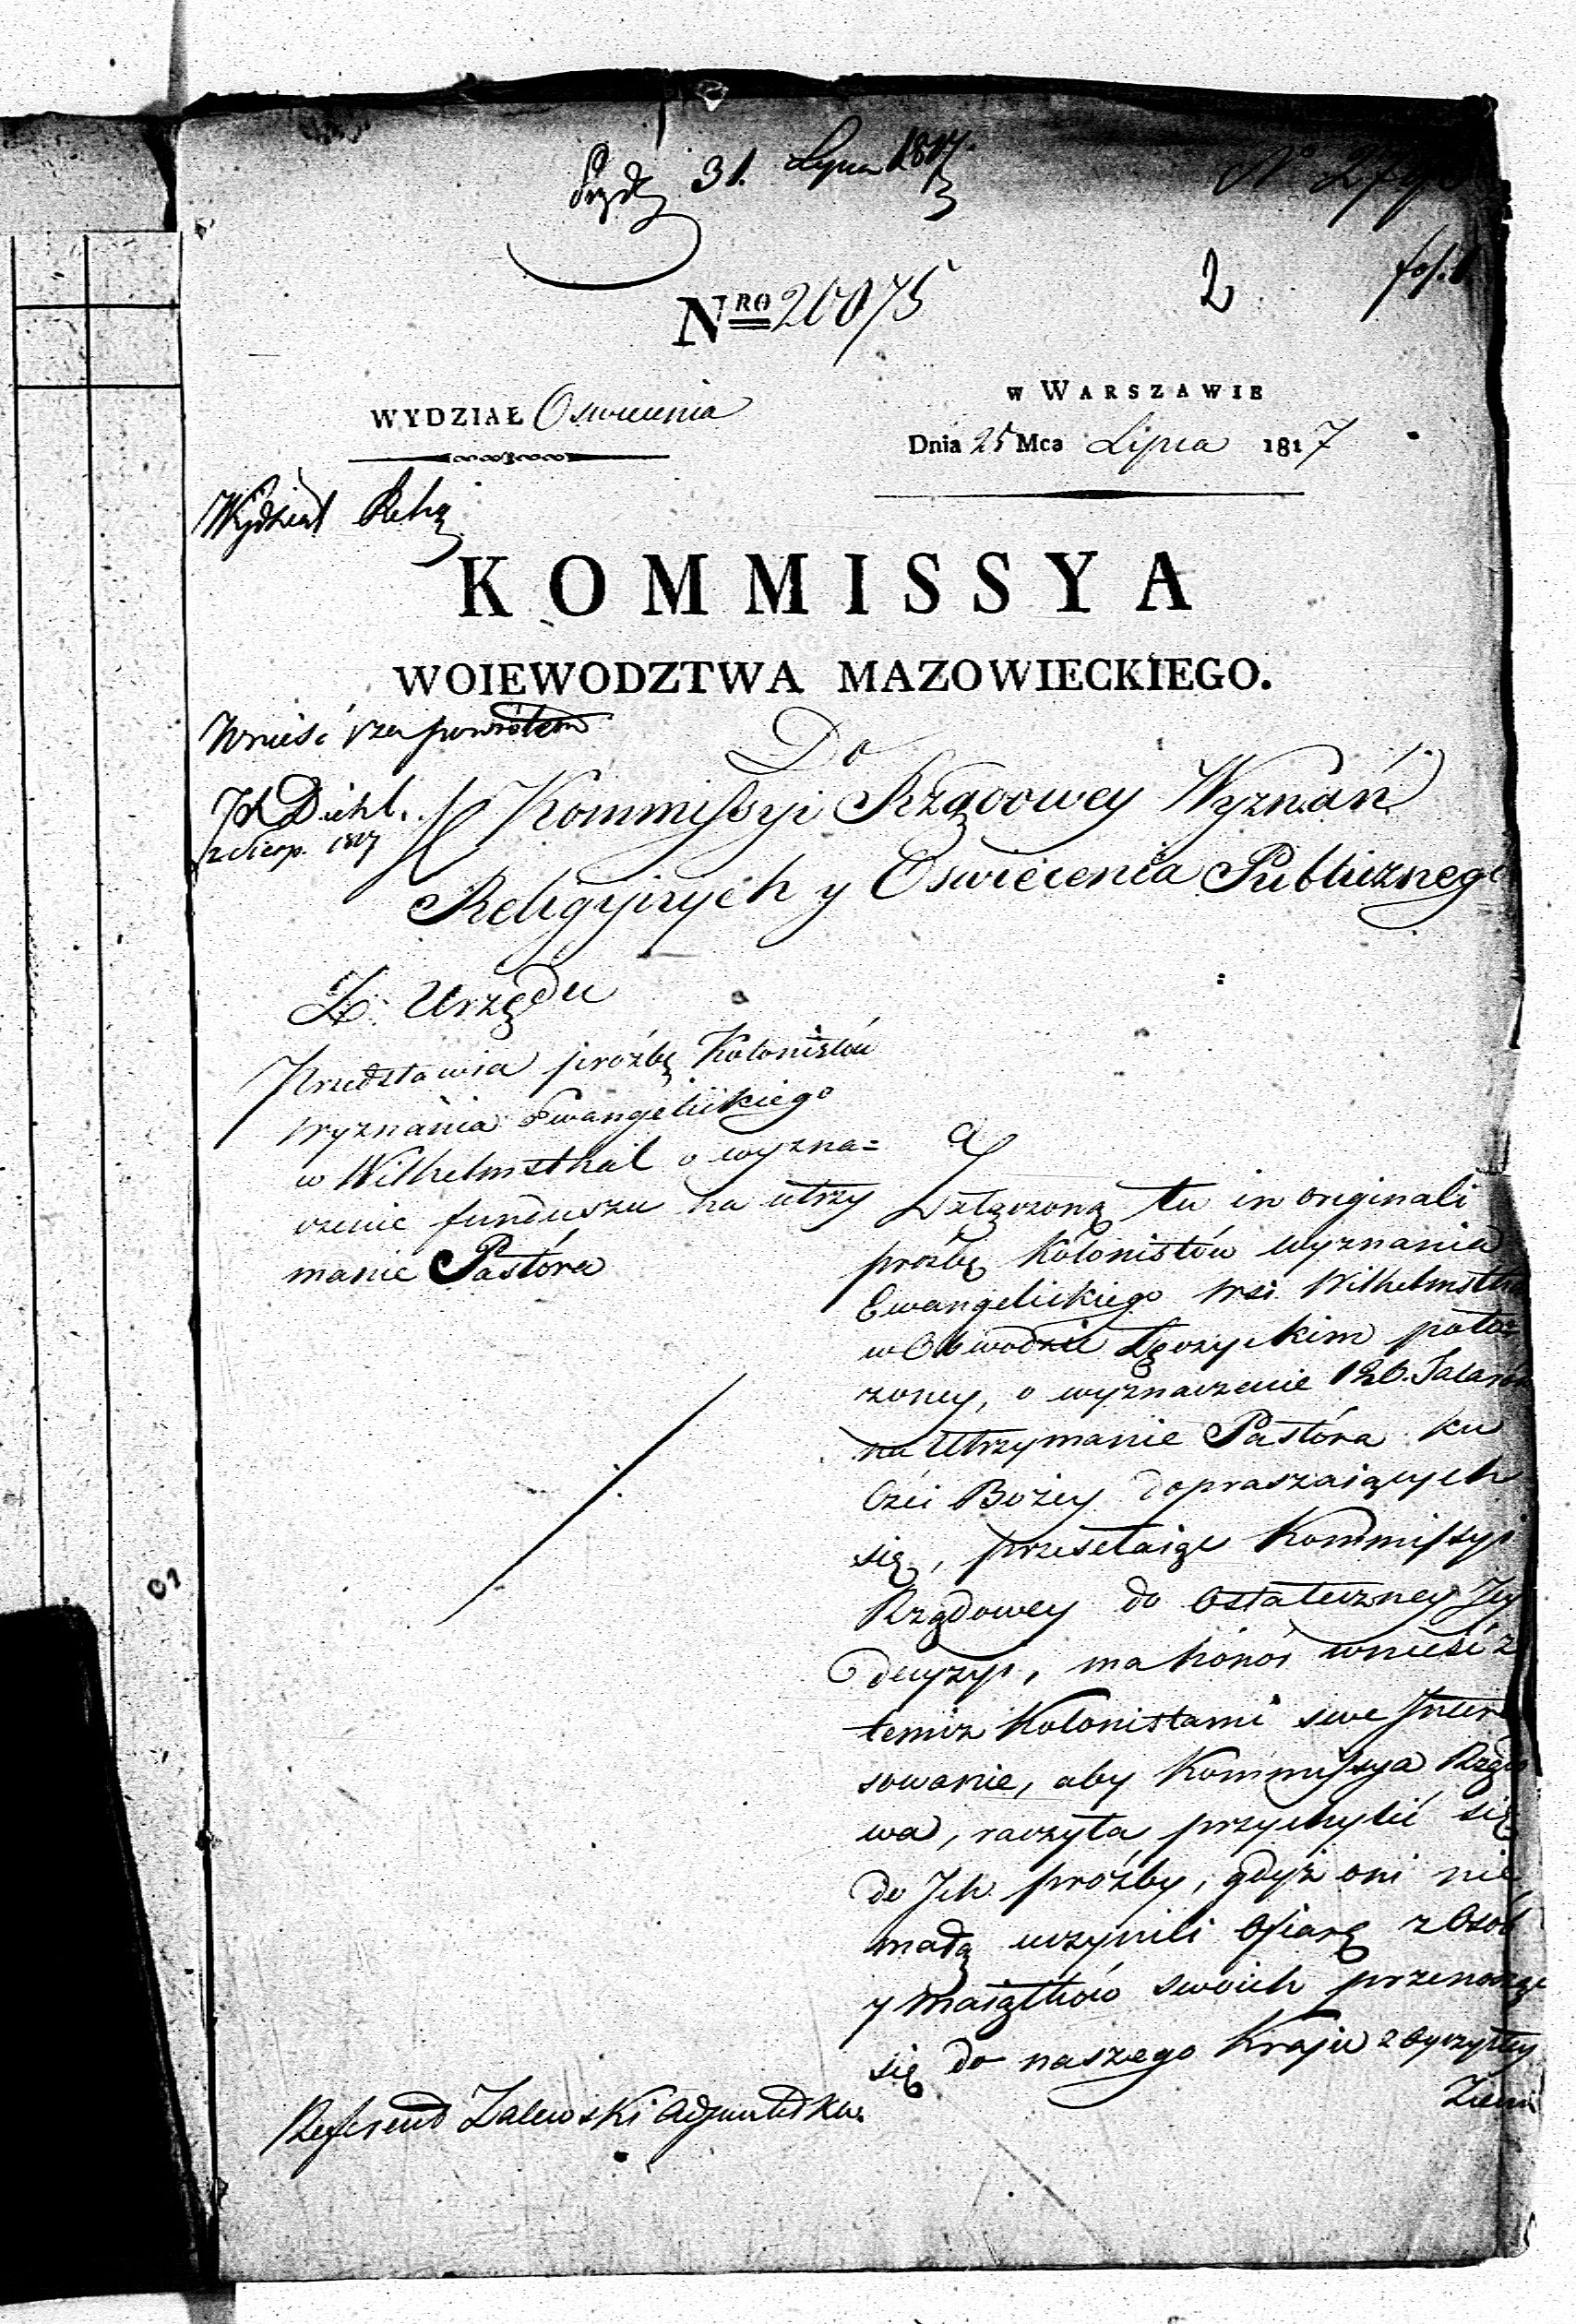 31. Lipca 1817.
2
fol. 1
NRO 20075
WYDZIAŁ Oswiecenia
W WARSZAWIE
Dnia 25 Mca Lipca 1817
Wydział Relig
KOMMISSYA
WOIEWODZTWA MAZOWIECKIEGO.
Wnieść za powrótem
Diehl.
2 Sierp. 1817
Do
Kommissyi Rządowey Wyznań
Religyinych y Oswiecenia Publicznego
Z Urzędu
Przedstawia proźbę Kolonistów
wyznania Ewangelickiego
w Wilhelmsthal o wyzna=
czenie funduszu na utrzy
manie Pastóra
Załączoną tu in originali
proźbę Kolonistów wyznania
Ewangelickiego wsi Wilhelmsthal
w Obwodzie Łęczyckim poło=
zoney, o wyznaczenie 120. Talarów
na Utrzymanie Pastóra ku
Czci Bożey dopraszaiących
się, przesełaiąc Kommissyi
Rządowey do Ostateczney Jey
decyzyi, ma honor wnieść z
temiz Kolonistami swe Intere
sowanie, aby Kommissya Rządo
wa, raczyła przychylić się
do Jch proźby, gdyż oni nie
małą uczynili Ofiarę z Osób
y Maiątków swoich przenosząc
się do naszego Kraju z Oyczystey
Ziemi
Referend Zalewski Adjunkt